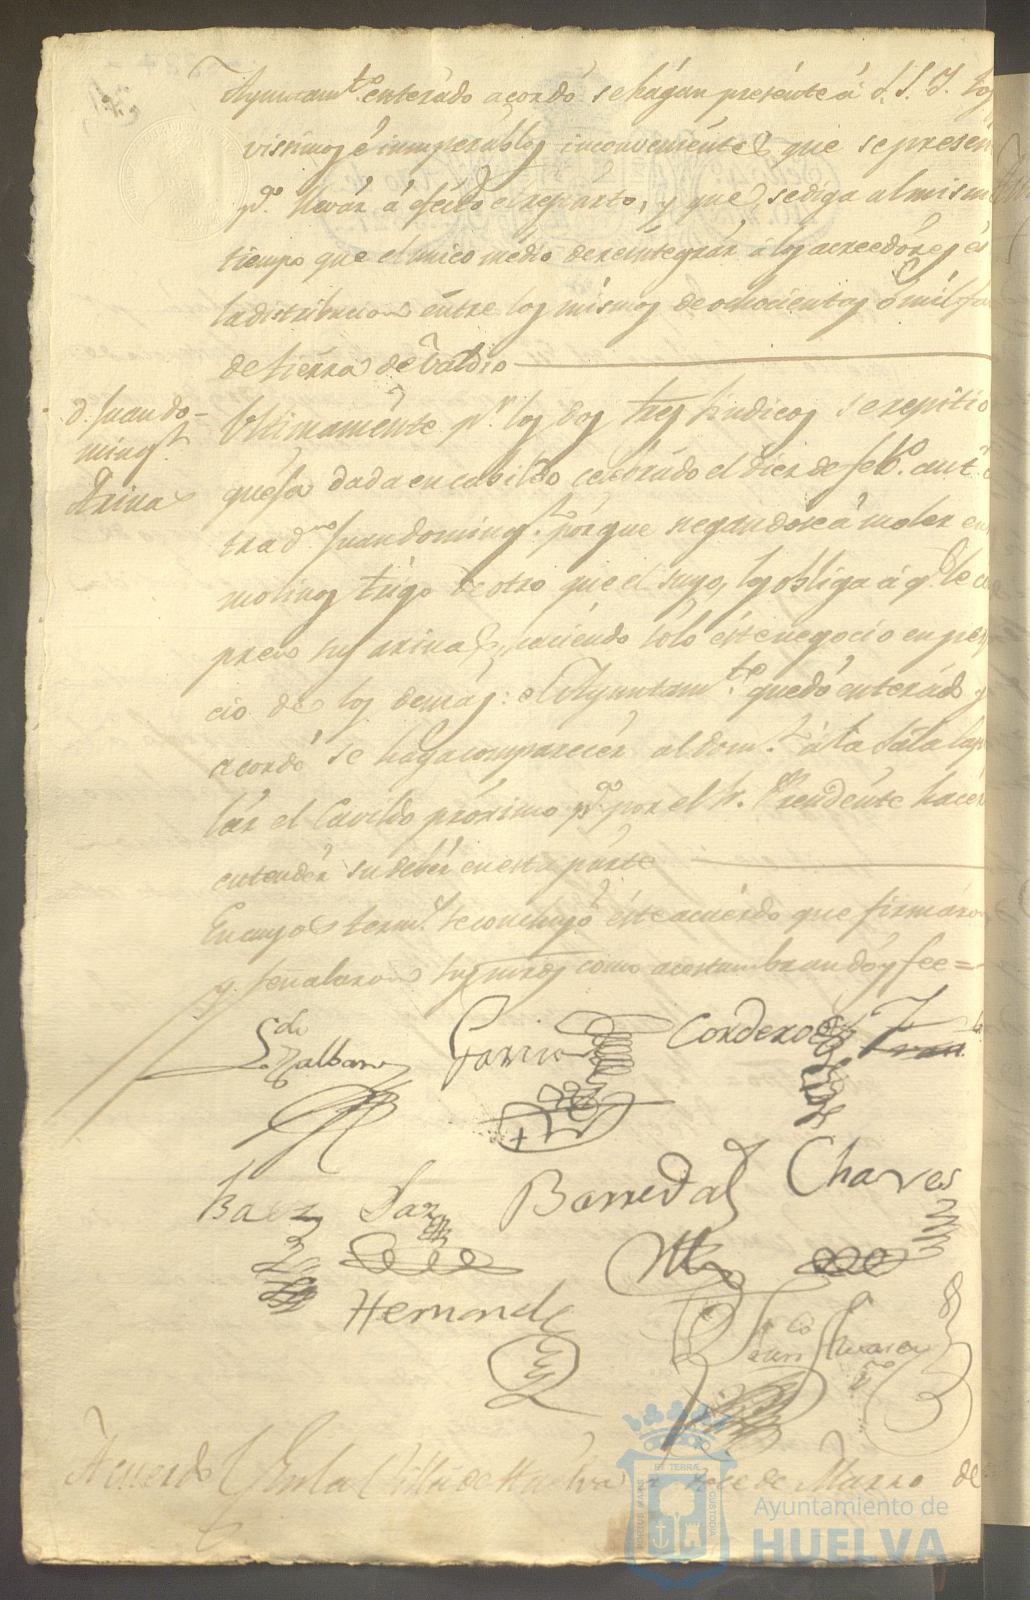 Ayuntamto. enterádo acordó se hágan presénte á S. S. Y. los
vissimos é insuperábles inconveniéntes que se presén
pa. llevár á efécto el repárto, y que se diga al mism
tiempo que el único médio de reintegrár á los acreedóres és
la distribucion éntre los mismos de ochocientas ó mil fa
de tiérra de Valdio
D. Juan do-
mingz.
Arina
Ultimamente pr. los dos Srez. Sindicos se repitio
quésa dada en cabildo celebrádo el diez de febo. ant.
tra dn. Juan Domingz. pórque negandose á moler en
molinos trigo de otro que el suyo, los obliga á qe. le
precio sus arinas, haciéndo sólo éste negocio en per
cio de los demás: el Ayuntamto. quedó enterádo y
acordó se haga comparecér al domz. á la Sala
lár el Cavildo próximo pa. por el Sr. Presidénte hacér
entendér su debér en esta párte
En cuyos termos. se concluyó éste acuérdo que firmáron
y señalaron sus mrds como acostumbran dóy fee =
Ldo. Zalbano
Garrido
Cordero
Báez
Saz
Barreda
Chaves
Hernandz
Suarez
Acuerdo
En la Villa de Huelva a trece de Marzo de
Ayuntamiento de
HUELVA
PORTUS MARIS
ET TERRÆ
CUSTODIA